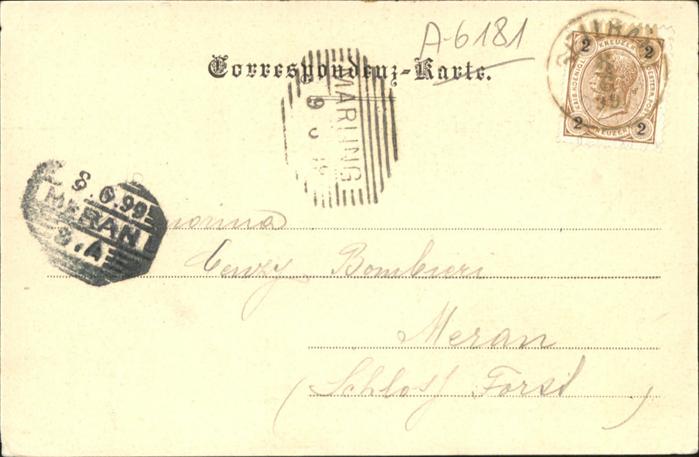 A-6181
Correspondenz-Karte.
2 KREUZER 2
2 KREUZER 2
MARLING
9
9.6.99
MERAN
Bombieri
Meran
(Schloss Forst)